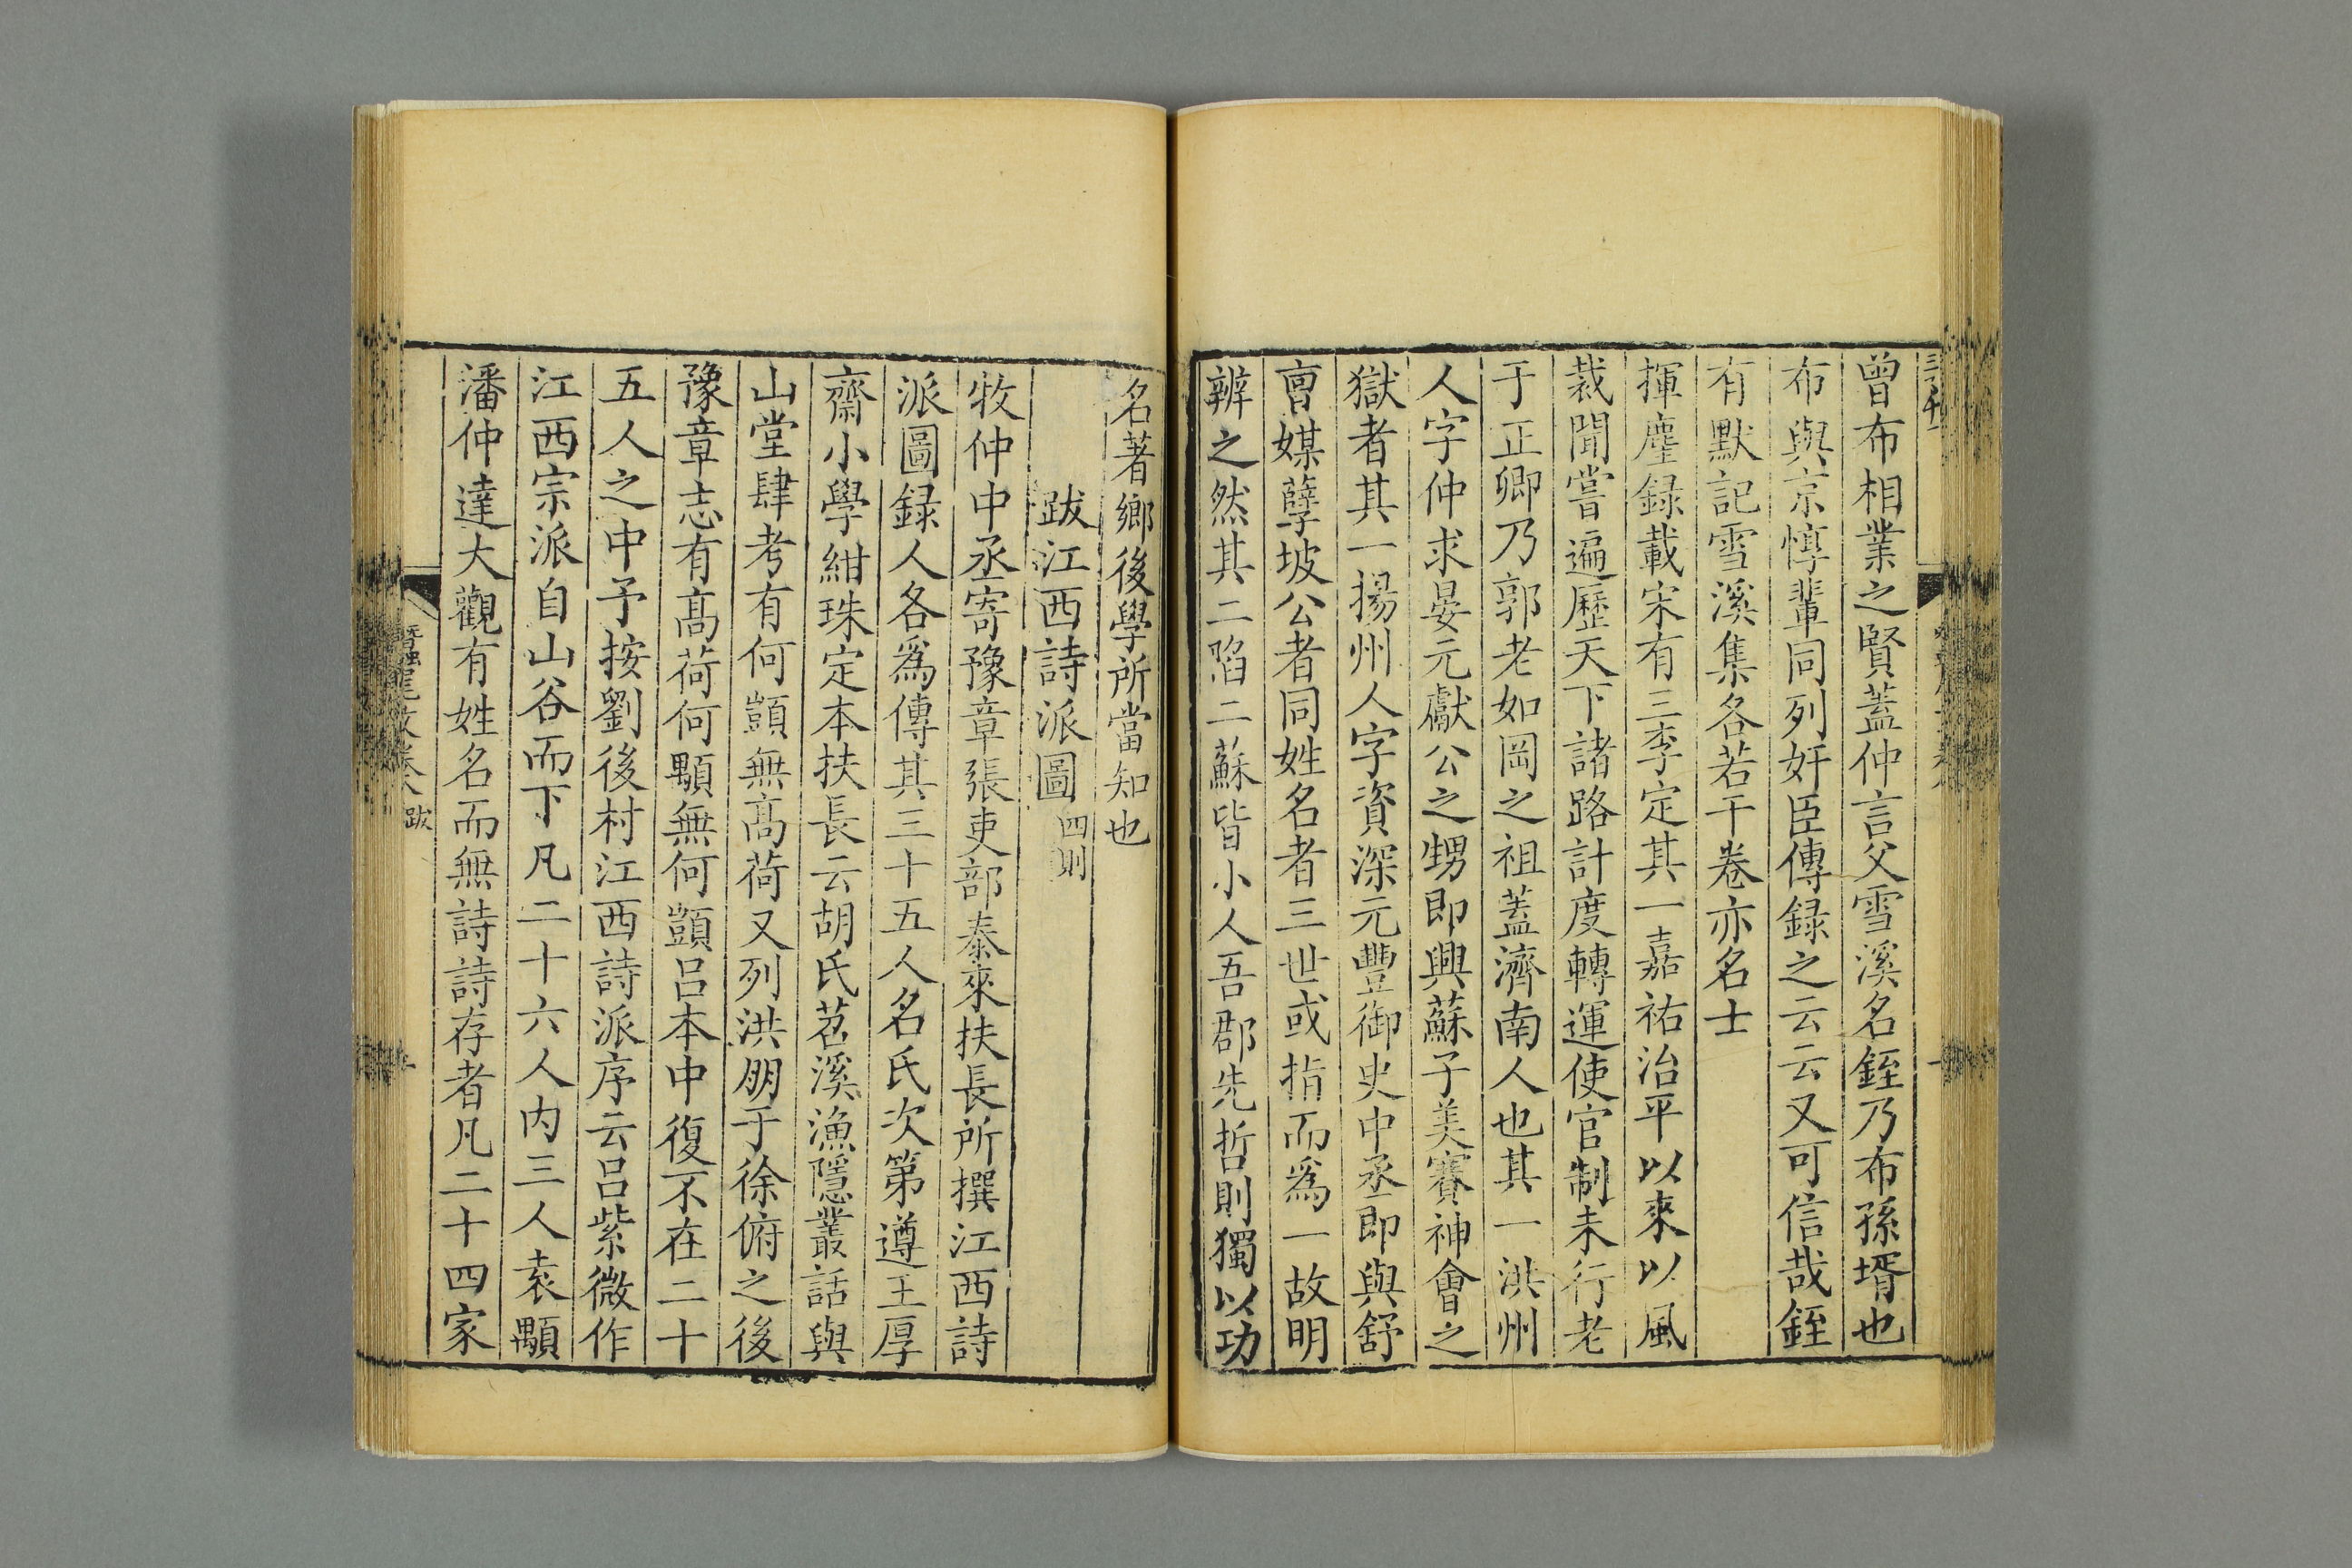 曾布相業之賢蓋仲言父雪溪名銍乃布孫壻也
布與京惇輩同列奸臣傳録之云云又可信哉銍
有默記雪溪集各若干卷亦名士
揮麈録載宋有三李定其一嘉祐治平以來以風
裁聞嘗遍歷天下諸路計度轉運使官制未行老
于正卿乃郭老如岡之祖蓋濟南人也其一洪州
人字仲求晏元獻公之甥即興蘇子美賽神會之
獄者其一揚州人字資深元豐御史中丞即與舒
亶媒孽坡公者同姓名者三世或指而爲一故明
辨之然其二陷二蘇皆小人吾郡先哲則獨以功
名著鄉後學所當知也
跋江西詩派圖 四則
牧仲中丞寄豫章張吏部泰來扶長所撰江西詩
派圖録人各爲傳其三十五人名氏次第遵王厚
齋小學紺珠定本扶長云胡氏苕溪漁隱叢話與
山堂肆考有何顗無高荷又列洪朋于徐俯之後
豫章志有高荷何顒無何顗吕本中復不在二十
五人之中予按劉後村江西詩派序云吕紫微作
江西宗派自山谷而下凡二十六人内三人袁顒
潘仲達大觀有姓名而無詩詩存者凡二十四家
蠶尾文卷八 跋